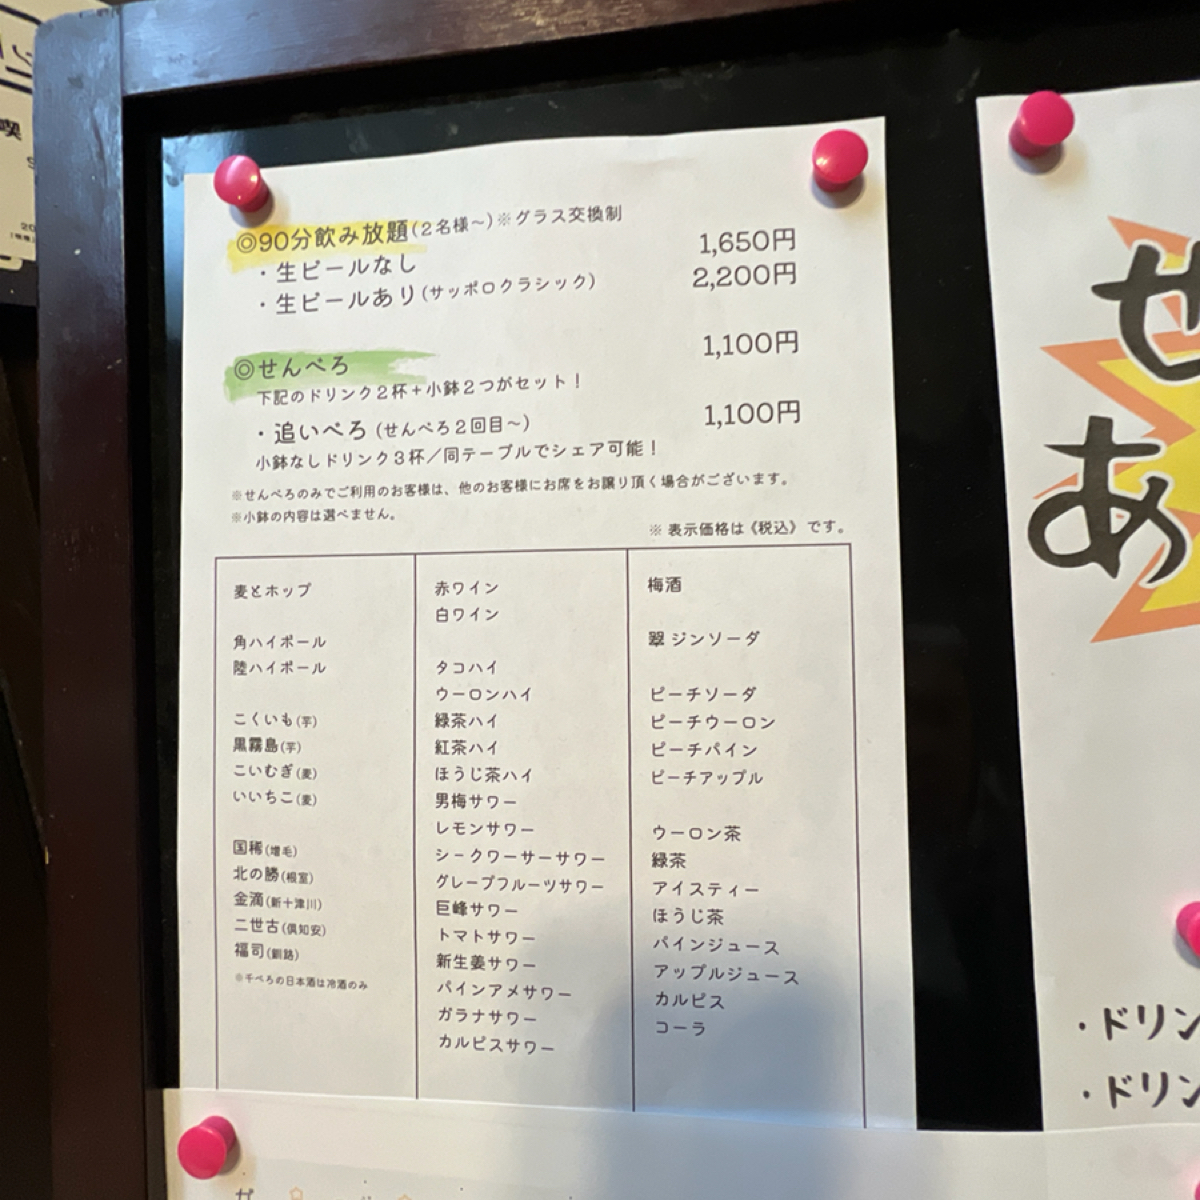 ◎90分飲み放題(2名様～)※グラス交換制
・生ビールなし 1,650円
・生ビールあり(サッポロクラシック) 2,200円
◎せんべろ 1,100円
下記のドリンク2杯+小鉢2つがセット！
・追いべろ(せんべろ2回目～) 1,100円
小鉢なしドリンク3杯／同テーブルでシェア可能！
※せんべろのみでご利用のお客様は、他のお客様にお席をお譲り頂く場合がございます。
※小鉢の内容は選べません。
※ 表示価格は《税込》です。
麦とホップ
角ハイボール
陸ハイボール
こくいも(芋)
黒霧島(芋)
こいむぎ(麦)
いいちこ(麦)
国稀(増毛)
北の勝(根室)
金滴(新十津川)
二世古(倶知安)
福司(釧路)
※千べろの日本酒は冷酒のみ
赤ワイン
白ワイン
タコハイ
ウーロンハイ
緑茶ハイ
紅茶ハイ
ほうじ茶ハイ
男梅サワー
レモンサワー
シークワーサーサワー
グレープフルーツサワー
巨峰サワー
トマトサワー
新生姜サワー
パインアメサワー
ガラナサワー
カルピスサワー
梅酒
翠 ジンソーダ
ピーチソーダ
ピーチウーロン
ピーチパイン
ピーチアップル
ウーロン茶
緑茶
アイスティー
ほうじ茶
パインジュース
アップルジュース
カルピス
コーラ
せ
あ
・ドリン
・ドリン